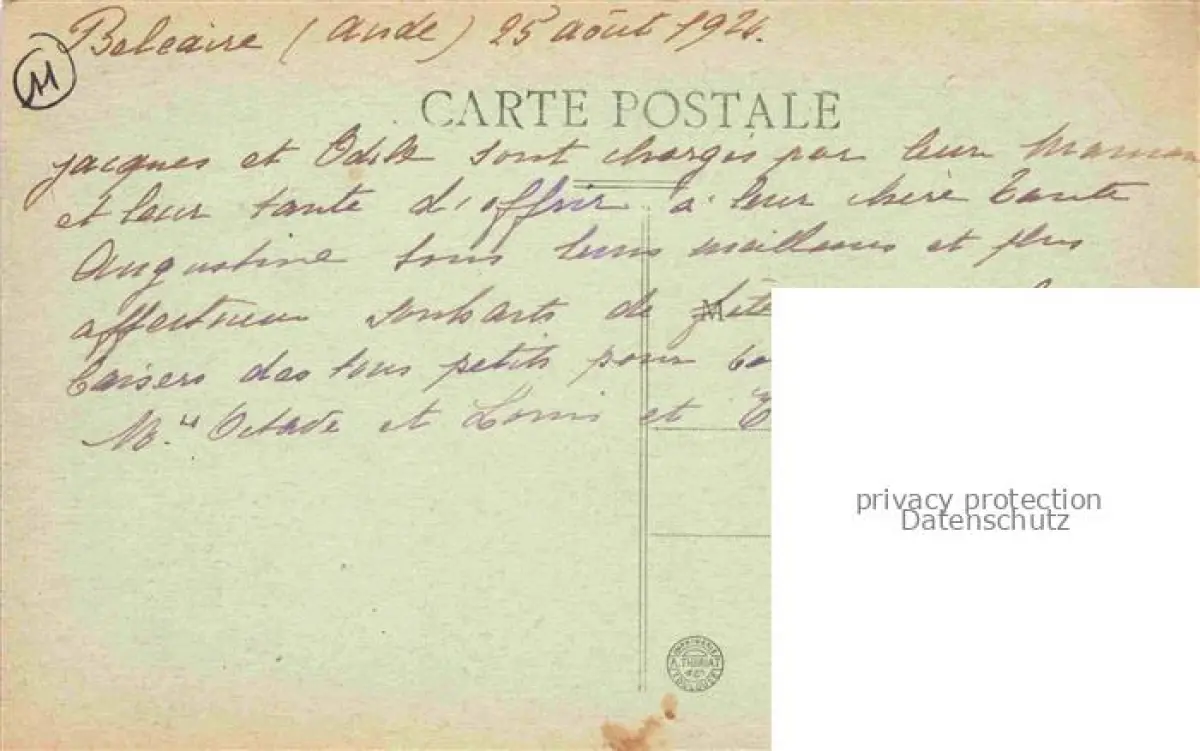 Belcaire (Aude) 25 août 192
11
CARTE POSTALE
Jacques et Odile sont chargés par leur Maman
et leur tante d'offrir à leur chère Tante
Augustine tous leurs meilleurs et plus
affectueux souhaits de fête
M
baisers des tous petits pour
M. Octave et Louis et
privacy protection
Datenschutz
IMPRIMERIE
A. THIRIAT
TOULOUSE